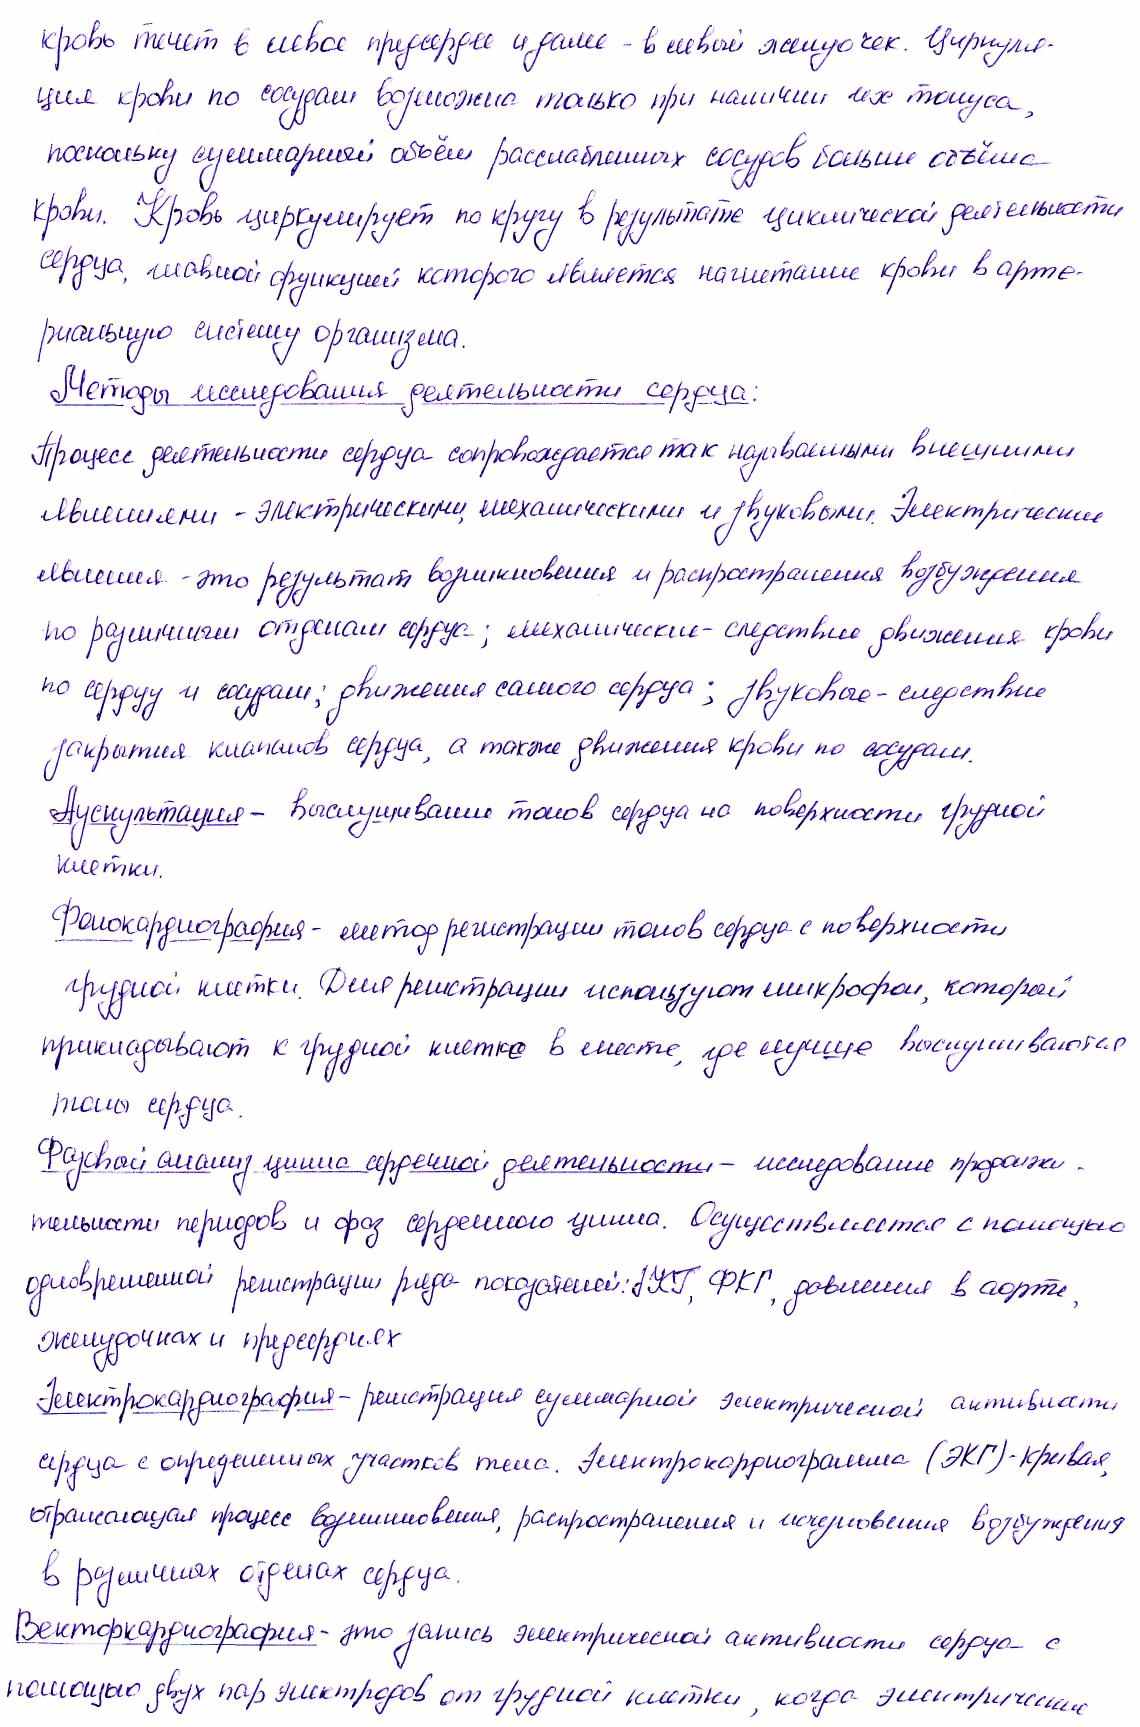 кровь течет в левое предсердее и далее - в левый желудочек. Циркуля-
ция крови по сосудам возможна только при наличии их тонуса,
поскольку суммарный объём расслабленных сосудов больше объёма
крови. Кровь циркулирует по кругу в результате циклической деятельности
сердца, главной функцией которого является нагнетание крови в арте-
риальную систему организма.
Методы исследования деятельности сердца:
Процесс деятельности сердца сопровождается так называемыми внешними
явлениями - электрическими, механическими и звуковыми. Электрические
явления - это результат возникновения и распространения возбуждения
по различным отделам сердца; механические - следствие движения крови
по сердцу и сосудам; движения самого сердца; звуковые - следствие
закрытия клапанов сердца, а также движения крови по сосудам.
Аускультация - выслушивание тонов сердца на поверхности грудной
клетки.
Фонокардиография - метод регистрации тонов сердца с поверхности
грудной клетки. Для регистрации используют микрофон, который
прикладывают к грудной клетке в месте, где лучше выслушиваются
тоны сердца.
Фазовый анализ цикла сердечной деятельности - исследование продолжи-
тельности периодов и фаз сердечного цикла. Осуществляется с помощью
одновременной регистрации ряда показателей: ЭКГ, ФКГ, давления в аорте,
желудочках и предсердиях
Электрокардиография - регистрация суммарной электрической активности
сердца с определенных участков тела. Электрокардиограмма (ЭКГ) - кривая,
отражающая процесс возникновения, распространения и исчезновения возбуждения
в различных отделах сердца.
Векторкардиография - это запись электрической активности сердца с
помощью двух пар электродов от грудной клетки, когда электрические